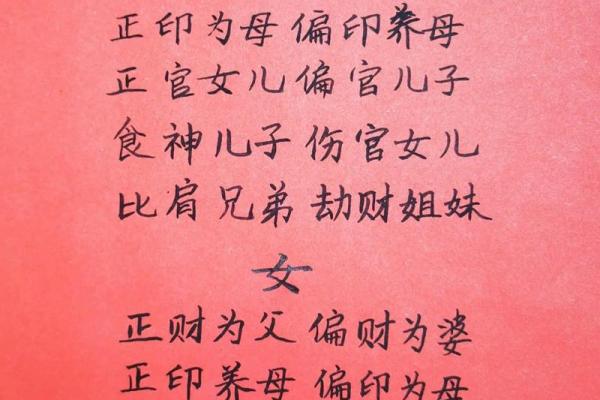 正印为母 偏印养母
正官女儿 偏官儿子
食神儿子 伤官女儿
比肩兄弟 劫财姐妹
女
正财为父 偏财为婆
正印养母 偏印为母